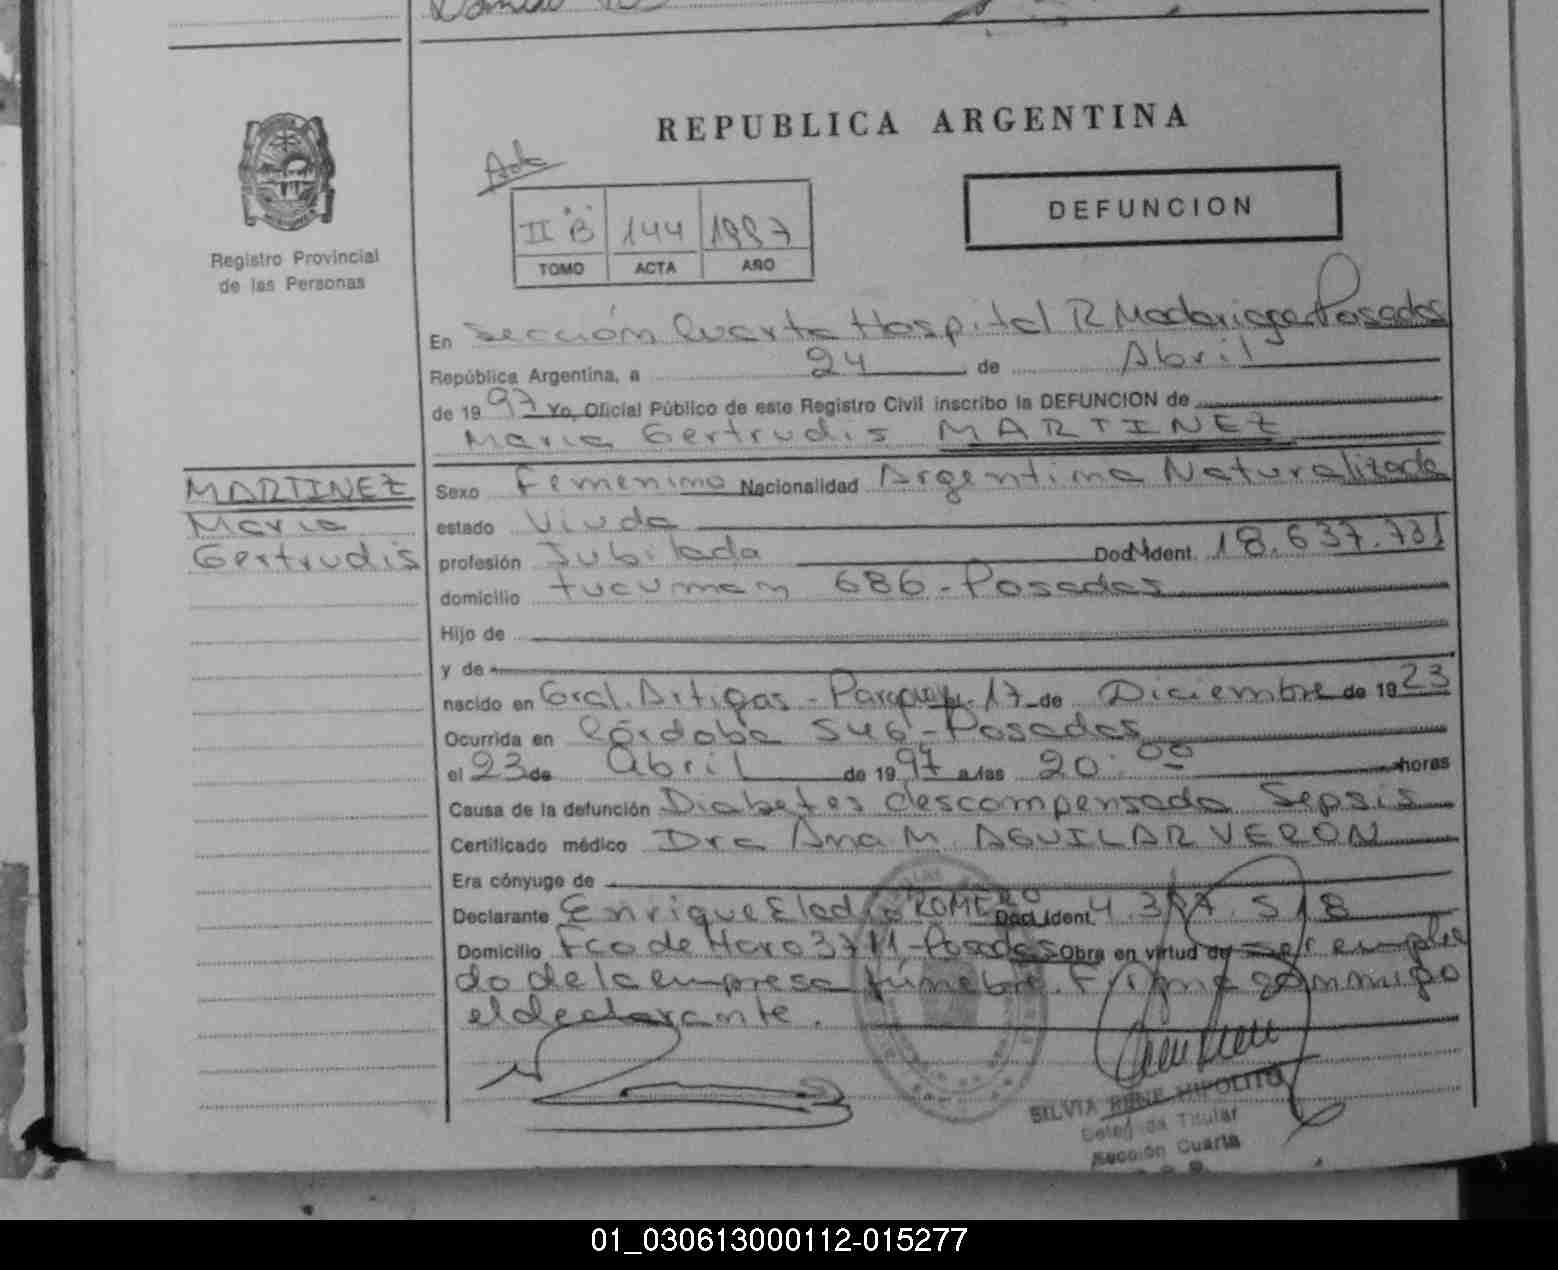 REPUBLICA ARGENTINA
Acta
II "B" 144 1997
TOMO ACTA AÑO
DEFUNCION
Registro Provincial
de las Personas
En Sección Cuarta Hospital R Madariaga Posadas
República Argentina, a 24 de Abril
de 1997 Yo, Oficial Público de este Registro Civil inscribo la DEFUNCION de
Maria Gertrudis MARTINEZ
MARTINEZ
Maria
Gertrudis
Sexo Femenino Nacionalidad Argentina Naturalizada
estado Viuda
profesión Jubilada Doc. Ident. 18.637.731
domicilio tucuman 686 - Posadas
Hijo de
y de
nacido en Gral. Artigas - Paraguay. 17 de Diciembre de 1923
Ocurrida en Córdoba 546 - Posadas
el 23 de abril de 1997 a las 20:00 horas
Causa de la defunción Diabetes descompensada Sepsis
Certificado médico Dra Ana M. AGUILAR VERON
Era cónyuge de
Declarante Enrique Eladio ROMERO Doc. Ident 4.3 .518
Domicilio Fco de Haro 3711 - Posadas Obra en virtud de ser emplea
do de la empresa fúnebre. Firma conmigo
el declarante.
SILVIA RENE HIPOLITO
Delegada Titular
Sección Cuarta
01_030613000112-015277